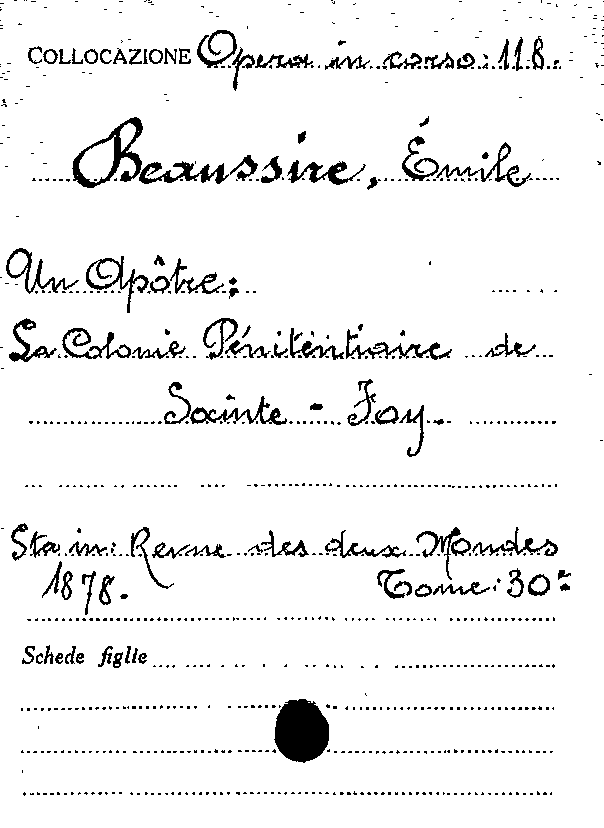 COLLOCAZIONE Opera in corso: 118.
Beaussire, Émile
Un Apôtre:
La Colonie Pénitentiaire de
Sainte - Foy.
Sta in: Revue des deux Mondes
1878. Tome: 30º
Schede figlie